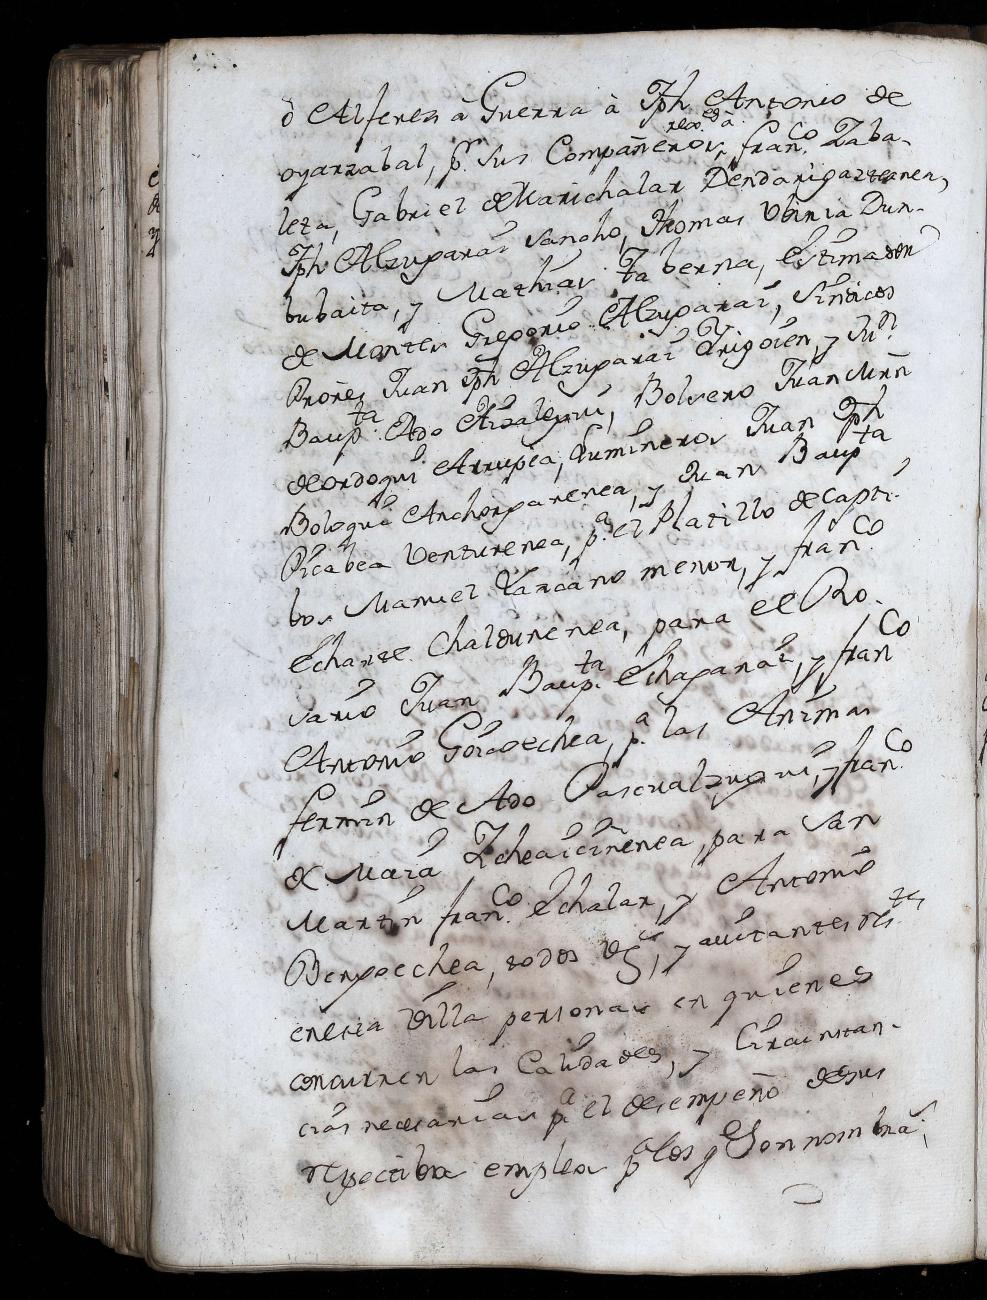 ð Alferez â Guerra â Jph Antonio de
oyarzabal, pr. sus Compañeros, franco. Zaba-
leta, Gabriel de Marichalar Dendarigazteanen,
Jph Alzuparar Sancho, Thomas Vbiria Dun-
bubaita, y Mathias Taberna, Estimador
de Montes Gregorio Alzuparar, Sindicos
Prores Juan Jph Alzuparar Yrigoien, y Jun
Baupta. Ado Arsalegui, Bolsero Juan Mrn
de ordoqui Arrupea, Lumineros Juan Jph
Boloqui Anchorparenea, y Juan Baupta
Picabea Venturenea, pa. el Platillo de Capti-
bos Manuel Larcano menor, y franco.
Echarte Chaldunenea, para el Ro-
sario Juan Baupta. Echaparar, y franco
Antonio Goizoechea, pa. las Animas
fermin de Ado Pascualzuqui, y franco.
de Maria Echeaicinenea, para San
Martin franco. Echalar, y Antonio
Bengoechea, todos y auitantes
enesta Villa personas en quienes
concurren las Calidades, y Circunstan-
cias necesarias pa. el desempeño desus
rrespectibos empleos pa los qe Son nombra-